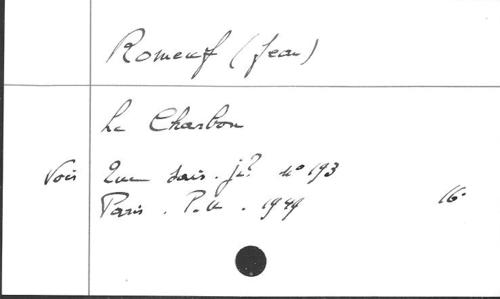 Romeuf (Jean)
Le Charbon
Voir Que sais-je? n° 193
Paris. P.U. 1949 16°